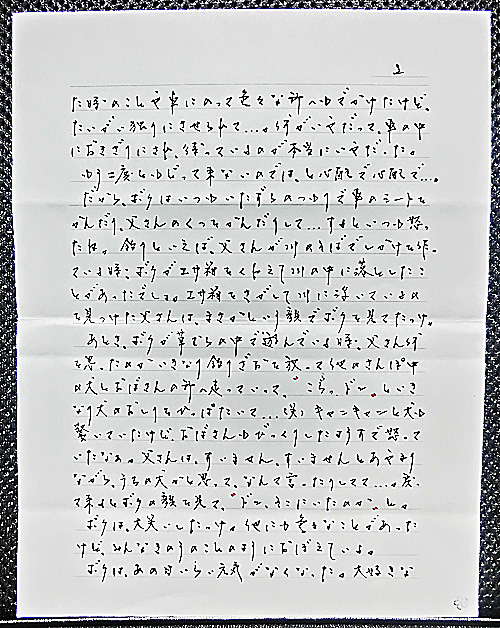 2
た時のことや車にのって色々な所へもでかけたけど、
たいがい独りにさせられて…。何がいやだって、車の中
におきざりにされ、待っているのが本当にいやだった。
もう二度ともどって来ないのでは、と心配で心配で…。
だから、ボクはいつもいたずらのつもりで車のシートを
かんだり、父さんのくつをかんだりして…するといつも怒っ
たね。釣りといえば、父さんが川のそばでしかけを作っ
ている時、ボクがエサ箱をくわえて川の中に落としたこ
とがあったでしょ。エサ箱をさがして川に浮いているの
を見つけた父さんは、まさかという顔でボクを見てたっけ。
あとき、ボクが草むらの中で遊んでいる時、父さん何
を思ったのかいきなり釣りざおを放って他のさんぽ中
の犬とおばさんの所へ走っていって、"こらっ、ドン"といき
なり犬のおしりをひっぱたいて…(笑)キャンキャンと犬も
驚いていたけど、おばさんもびっくりしたようすで怒って
いたなぁ。父さんは、すいません、すいませんとあやまり
ながら、うちの犬かと思って、なんて言ったりしてて…。戻っ
て来るとボクの顔を見て、"ドン、そこにいたのか"と。
ボクは、大笑いしたっけ。他にも色々なことがあった
けど、みんなきのうのことのようにおぼえているよ。
ボクは、あの日いらい元気がなくなった。大好きな